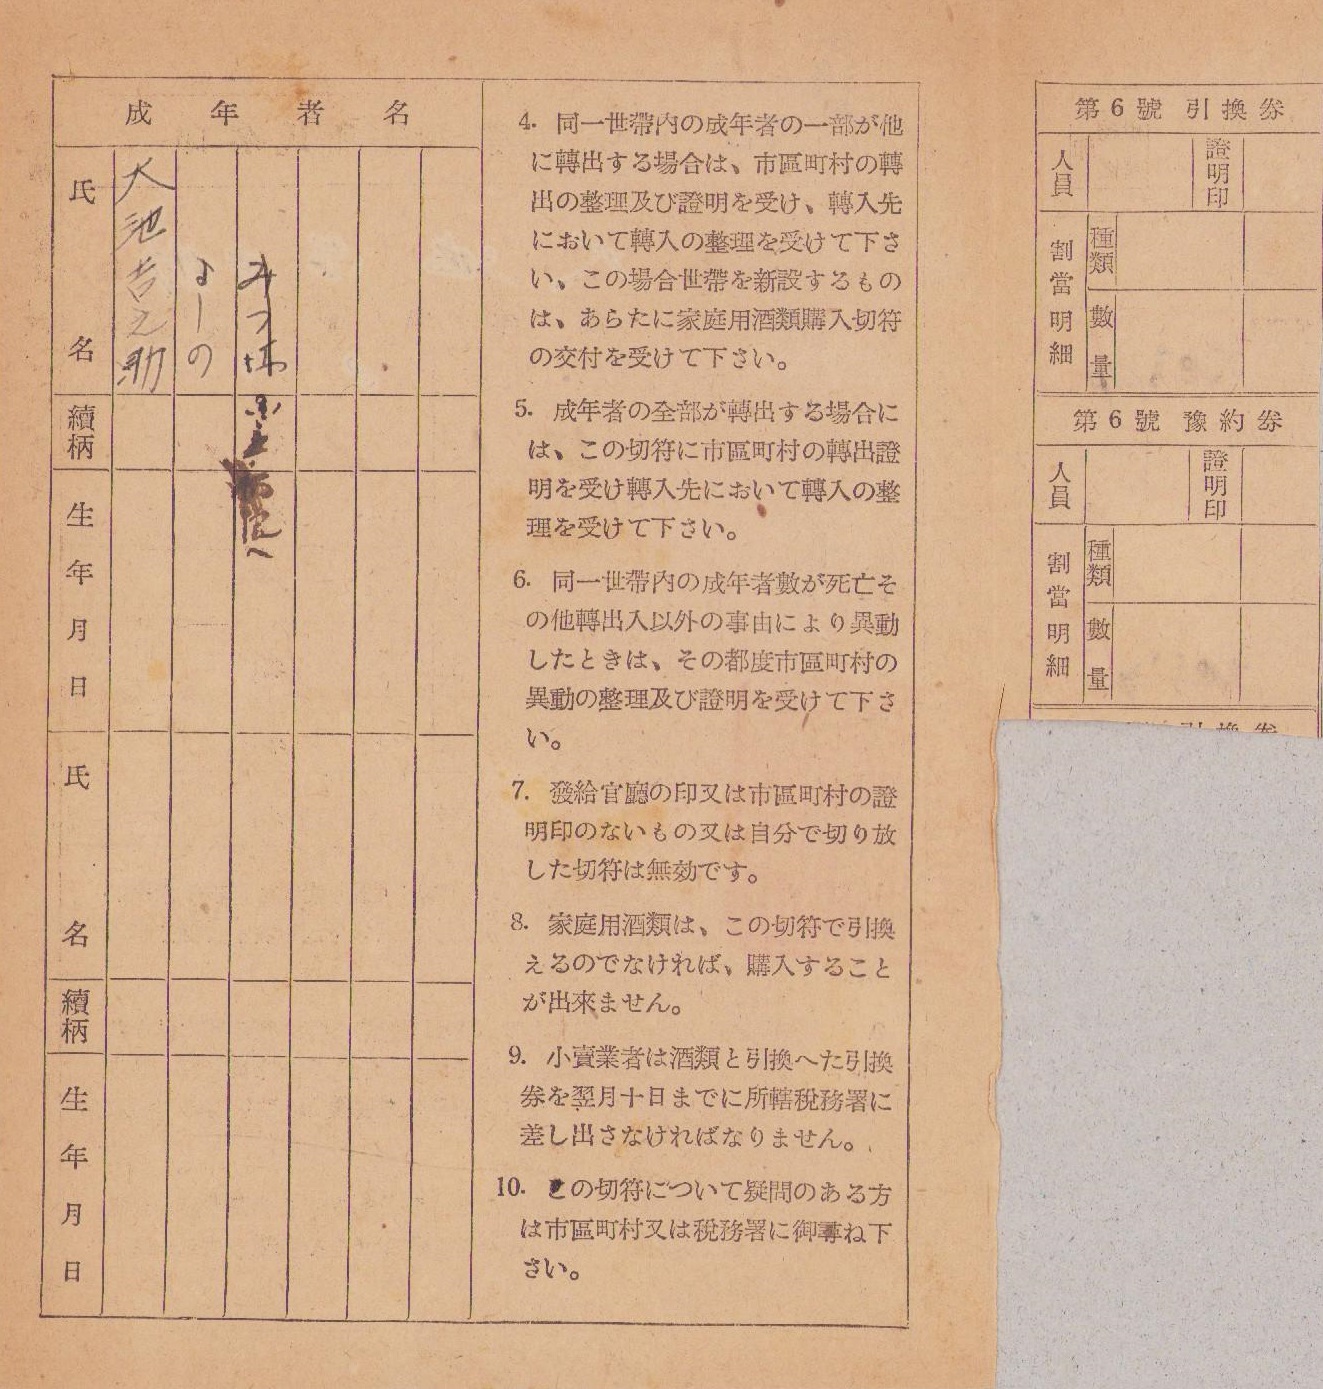 成年者名
氏名
大池吉之助
よしの
續柄
生年月日
氏名
續柄
生年月日
4. 同一世帶内の成年者の一部が他
に轉出する場合は、市區町村の轉
出の整理及び證明を受け、轉入先
において轉入の整理を受けて下さ
い、この場合世帶を新設するもの
は、あらたに家庭用酒類購入切符
の交付を受けて下さい。
5. 成年者の全部が轉出する場合に
は、この切符に市區町村の轉出證
明を受け轉入先において轉入の整
理を受けて下さい。
6. 同一世帶内の成年者數が死亡そ
の他轉出入以外の事由により異動
したときは、その都度市區町村の
異動の整理及び證明を受けて下さ
い。
7. 發給官廳の印又は市區町村の證
明印のないもの又は自分で切り放
した切符は無効です。
8. 家庭用酒類は、この切符で引換
えるのでなければ、購入すること
が出來ません。
9. 小賣業者は酒類と引換へた引換
券を翌月十日までに所轄税務署に
差し出さなければなりません。
10. この切符について疑問のある方
は市區町村又は税務署に御尋ね下
さい。
第6號 引換券
人員
證明印
割當明細
種類
數量
第6號 豫約券
人員
證明印
割當明細
種類
數量
引換券